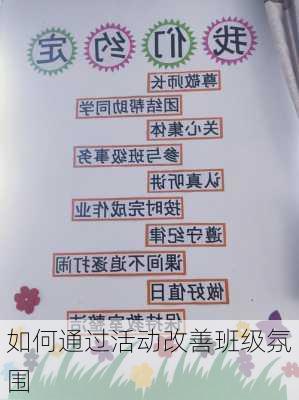 我们约定
尊敬师长
团结帮助同学
关心集体
参与班级事务
认真听讲
按时完成作业
遵守纪律
课间不追逐打闹
做好值日
保持教室整洁
如何通过活动改善班级氛
围